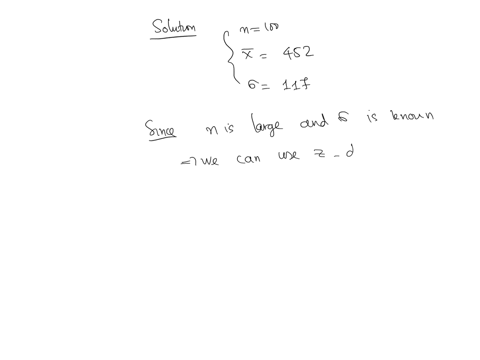 Solution
n = 100
x̄ = 452
σ = 117
Since n is large and σ is known
⇒ we can use z - d